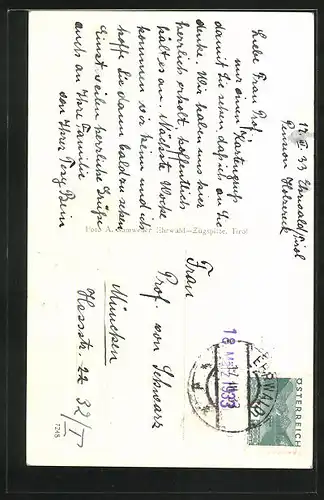 17. III 33 Ehrwald/Tirol
Pension Holzreck
Liebe Frau Prof.,
nur einen Kartengruß
damit Sie sehen daß ich an Sie
denke. Wir haben uns hier
herrlich erholt, hoffentlich
hält es an. Nächste Woche
kommen wir heim und ich
hoffe Sie dann bald zu sehen
Einstweilen herzliche Grüße
auch an Ihre Familie
von Ihrer
Ehrwald—Zugspitze, Tirol
Frau
Prof. von Schwarz
München
Hessstr. 22 32/I
18
1933
EHRWALD
ÖSTERREICH
1248